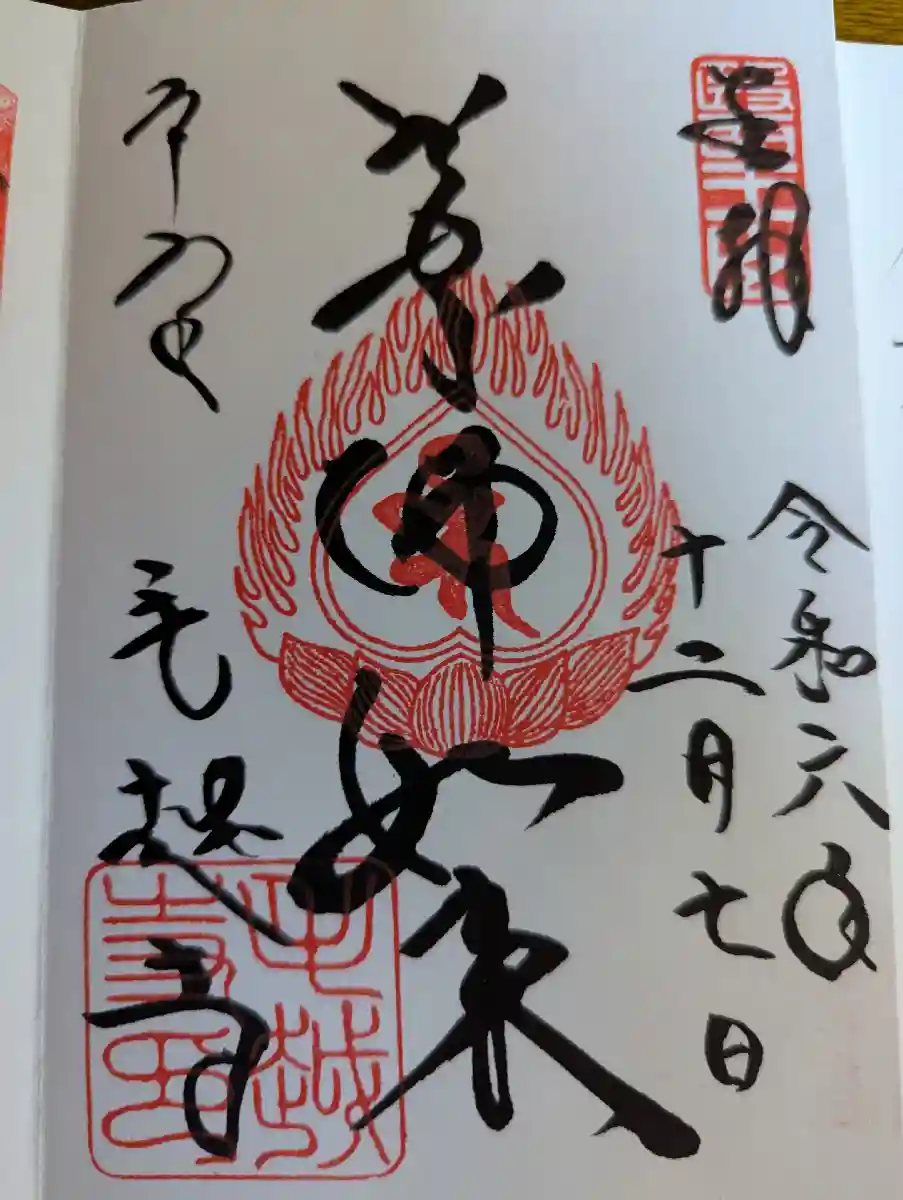 奉拝
令和六年
十二月七日
薬師如来
平泉
毛越寺
毛越
寺印